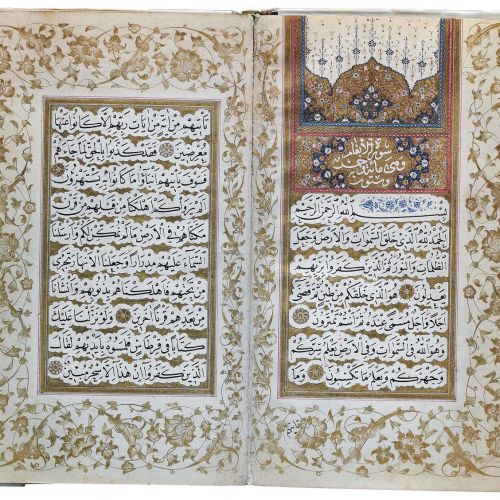 سورة الانعام
وهي مائة وخمس
بسم الله الرحمن الرحيم
الحمد لله الذي خلق السموات والارض وجعل
الظلمات والنور ثم الذين كفروا بربهم
يعدلون هو الذي خلقكم من طين ثم قضى
اجلا واجل مسمى عنده ثم انتم تمترون
وهو الله في السموات وفي الارض يعلم سركم
وجهركم ويعلم ما تكسبون وما
تأتيهم
تأتيهم من آية من آيات ربهم الا كانوا عنها
معرضين فقد كذبوا بالحق لما جاءهم
فسوف يأتيهم انباء ما كانوا به يستهزؤن
الم يروا كم اهلكنا من قبلهم من قرن
مكناهم في الارض ما لم نمكن لكم وارسلنا
السماء عليهم مدرارا وجعلنا الانهار تجري
من تحتهم فاهلكناهم بذنوبهم وانشأنا
من بعدهم قرنا آخرين ولو نزلنا عليك
كتابا في قرطاس فلمسوه بايديهم لقال
الذين كفروا ان هذا الا سحر مبين